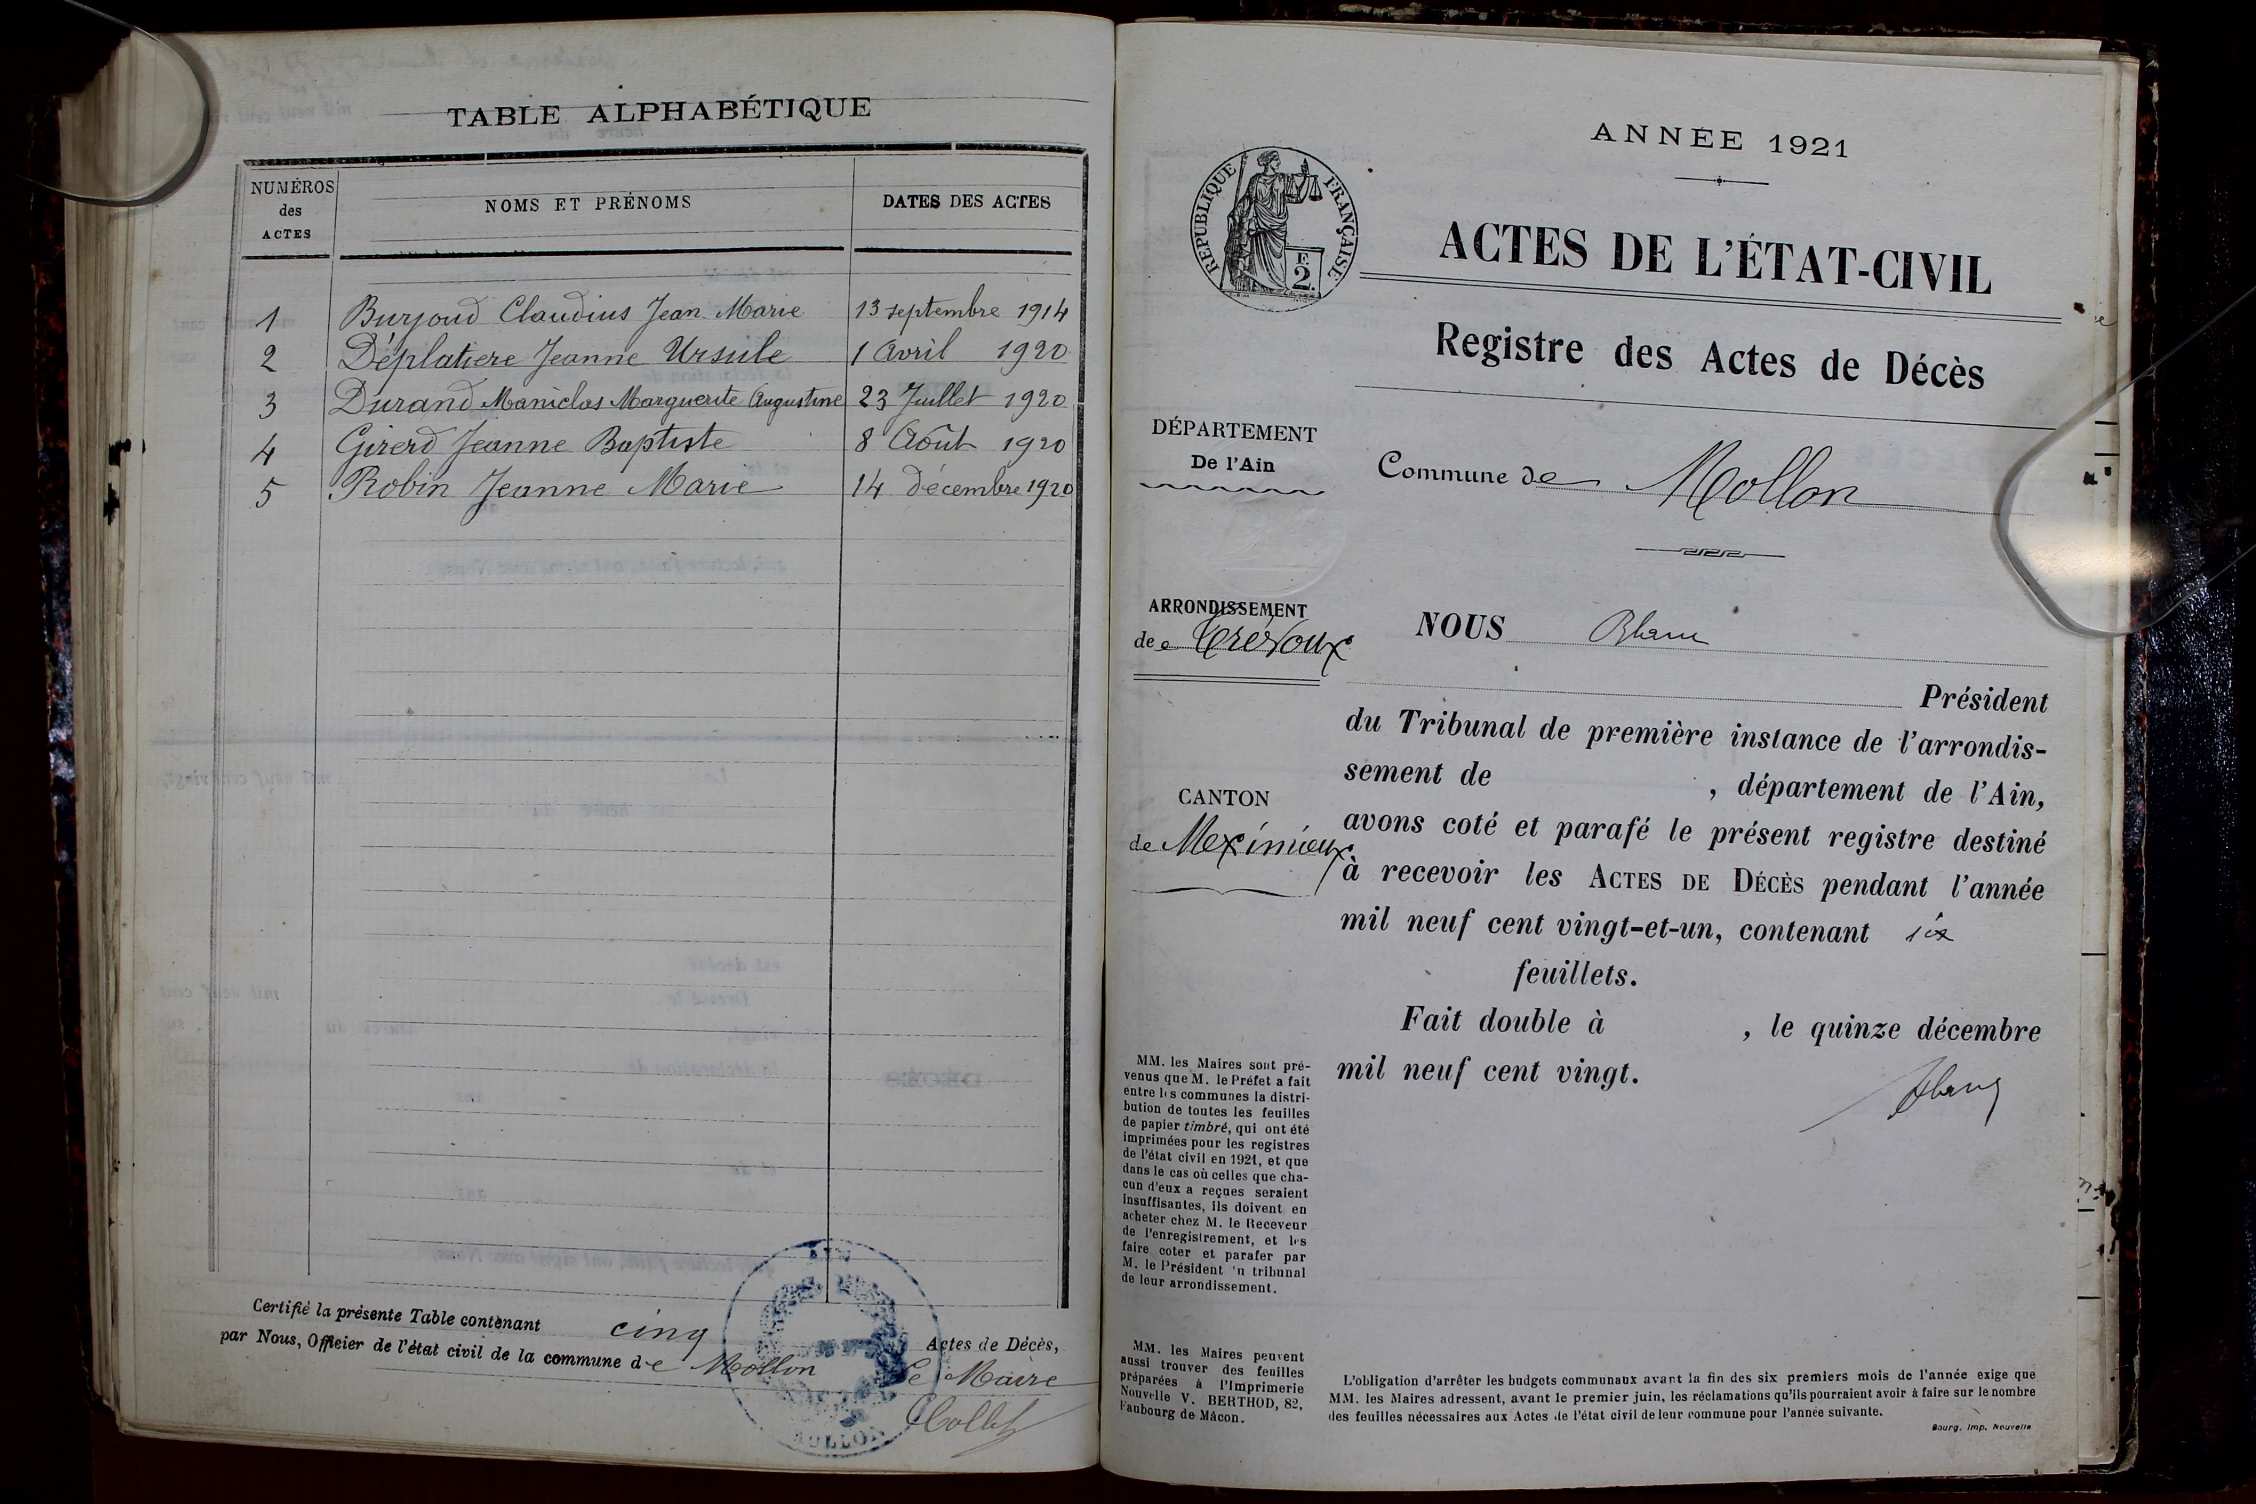 TABLE ALPHABÉTIQUE
NUMÉROS
des
ACTES
NOMS ET PRÉNOMS
DATES DES ACTES
1 Burjoud Claudius Jean Marie 13 septembre 1914
2 Déplatiere Jeanne Ursule 1 Avril 1920
3 Durand Maniclas Marguerite Augustine 23 Juillet 1920
4 Girerd Jeanne Baptiste 8 Août 1920
5 Robin Jeanne Marie 14 décembre 1920
Certifié la présente Table contenant cinq Actes de Décès,
par Nous, Officier de l'état civil de la commune de Mollon
Le Maire
MOLLON
ANNÉE 1921
RÉPUBLIQUE FRANÇAISE
F.
2.
ACTES DE L'ÉTAT-CIVIL
Registre des Actes de Décès
DÉPARTEMENT
De l'Ain
Commune de Mollon
ARRONDISSEMENT
de Trévoux
CANTON
de Meximieux
NOUS Blanc
Président
du Tribunal de première instance de l'arrondis-
sement de , département de l'Ain,
avons coté et parafé le présent registre destiné
à recevoir les ACTES DE DÉCÈS pendant l'année
mil neuf cent vingt-et-un, contenant six
feuillets.
Fait double à , le quinze décembre
mil neuf cent vingt.
Blanc
MM. les Maires sont pré-
venus que M. le Préfet a fait
entre les communes la distri-
bution de toutes les feuilles
de papier timbré, qui ont été
imprimées pour les registres
de l'état civil en 1921, et que
dans le cas où celles que cha-
cun d'eux a reçues seraient
insuffisantes, ils doivent en
acheter chez M. le Receveur
de l'enregistrement, et les
faire coter et parafer par
M. le Président 'u tribunal
de leur arrondissement.
MM. les Maires peuvent
aussi trouver des feuilles
préparées à l'Imprimerie
Nouvelle V. BERTHOD, 82,
Faubourg de Mâcon.
L'obligation d'arrêter les budgets communaux avant la fin des six premiers mois de l'année exige que
MM. les Maires adressent, avant le premier juin, les réclamations qu'ils pourraient avoir à faire sur le nombre
des feuilles nécessaires aux Actes de l'état civil de leur commune pour l'année suivante.
Bourg, Imp. Nouvelle